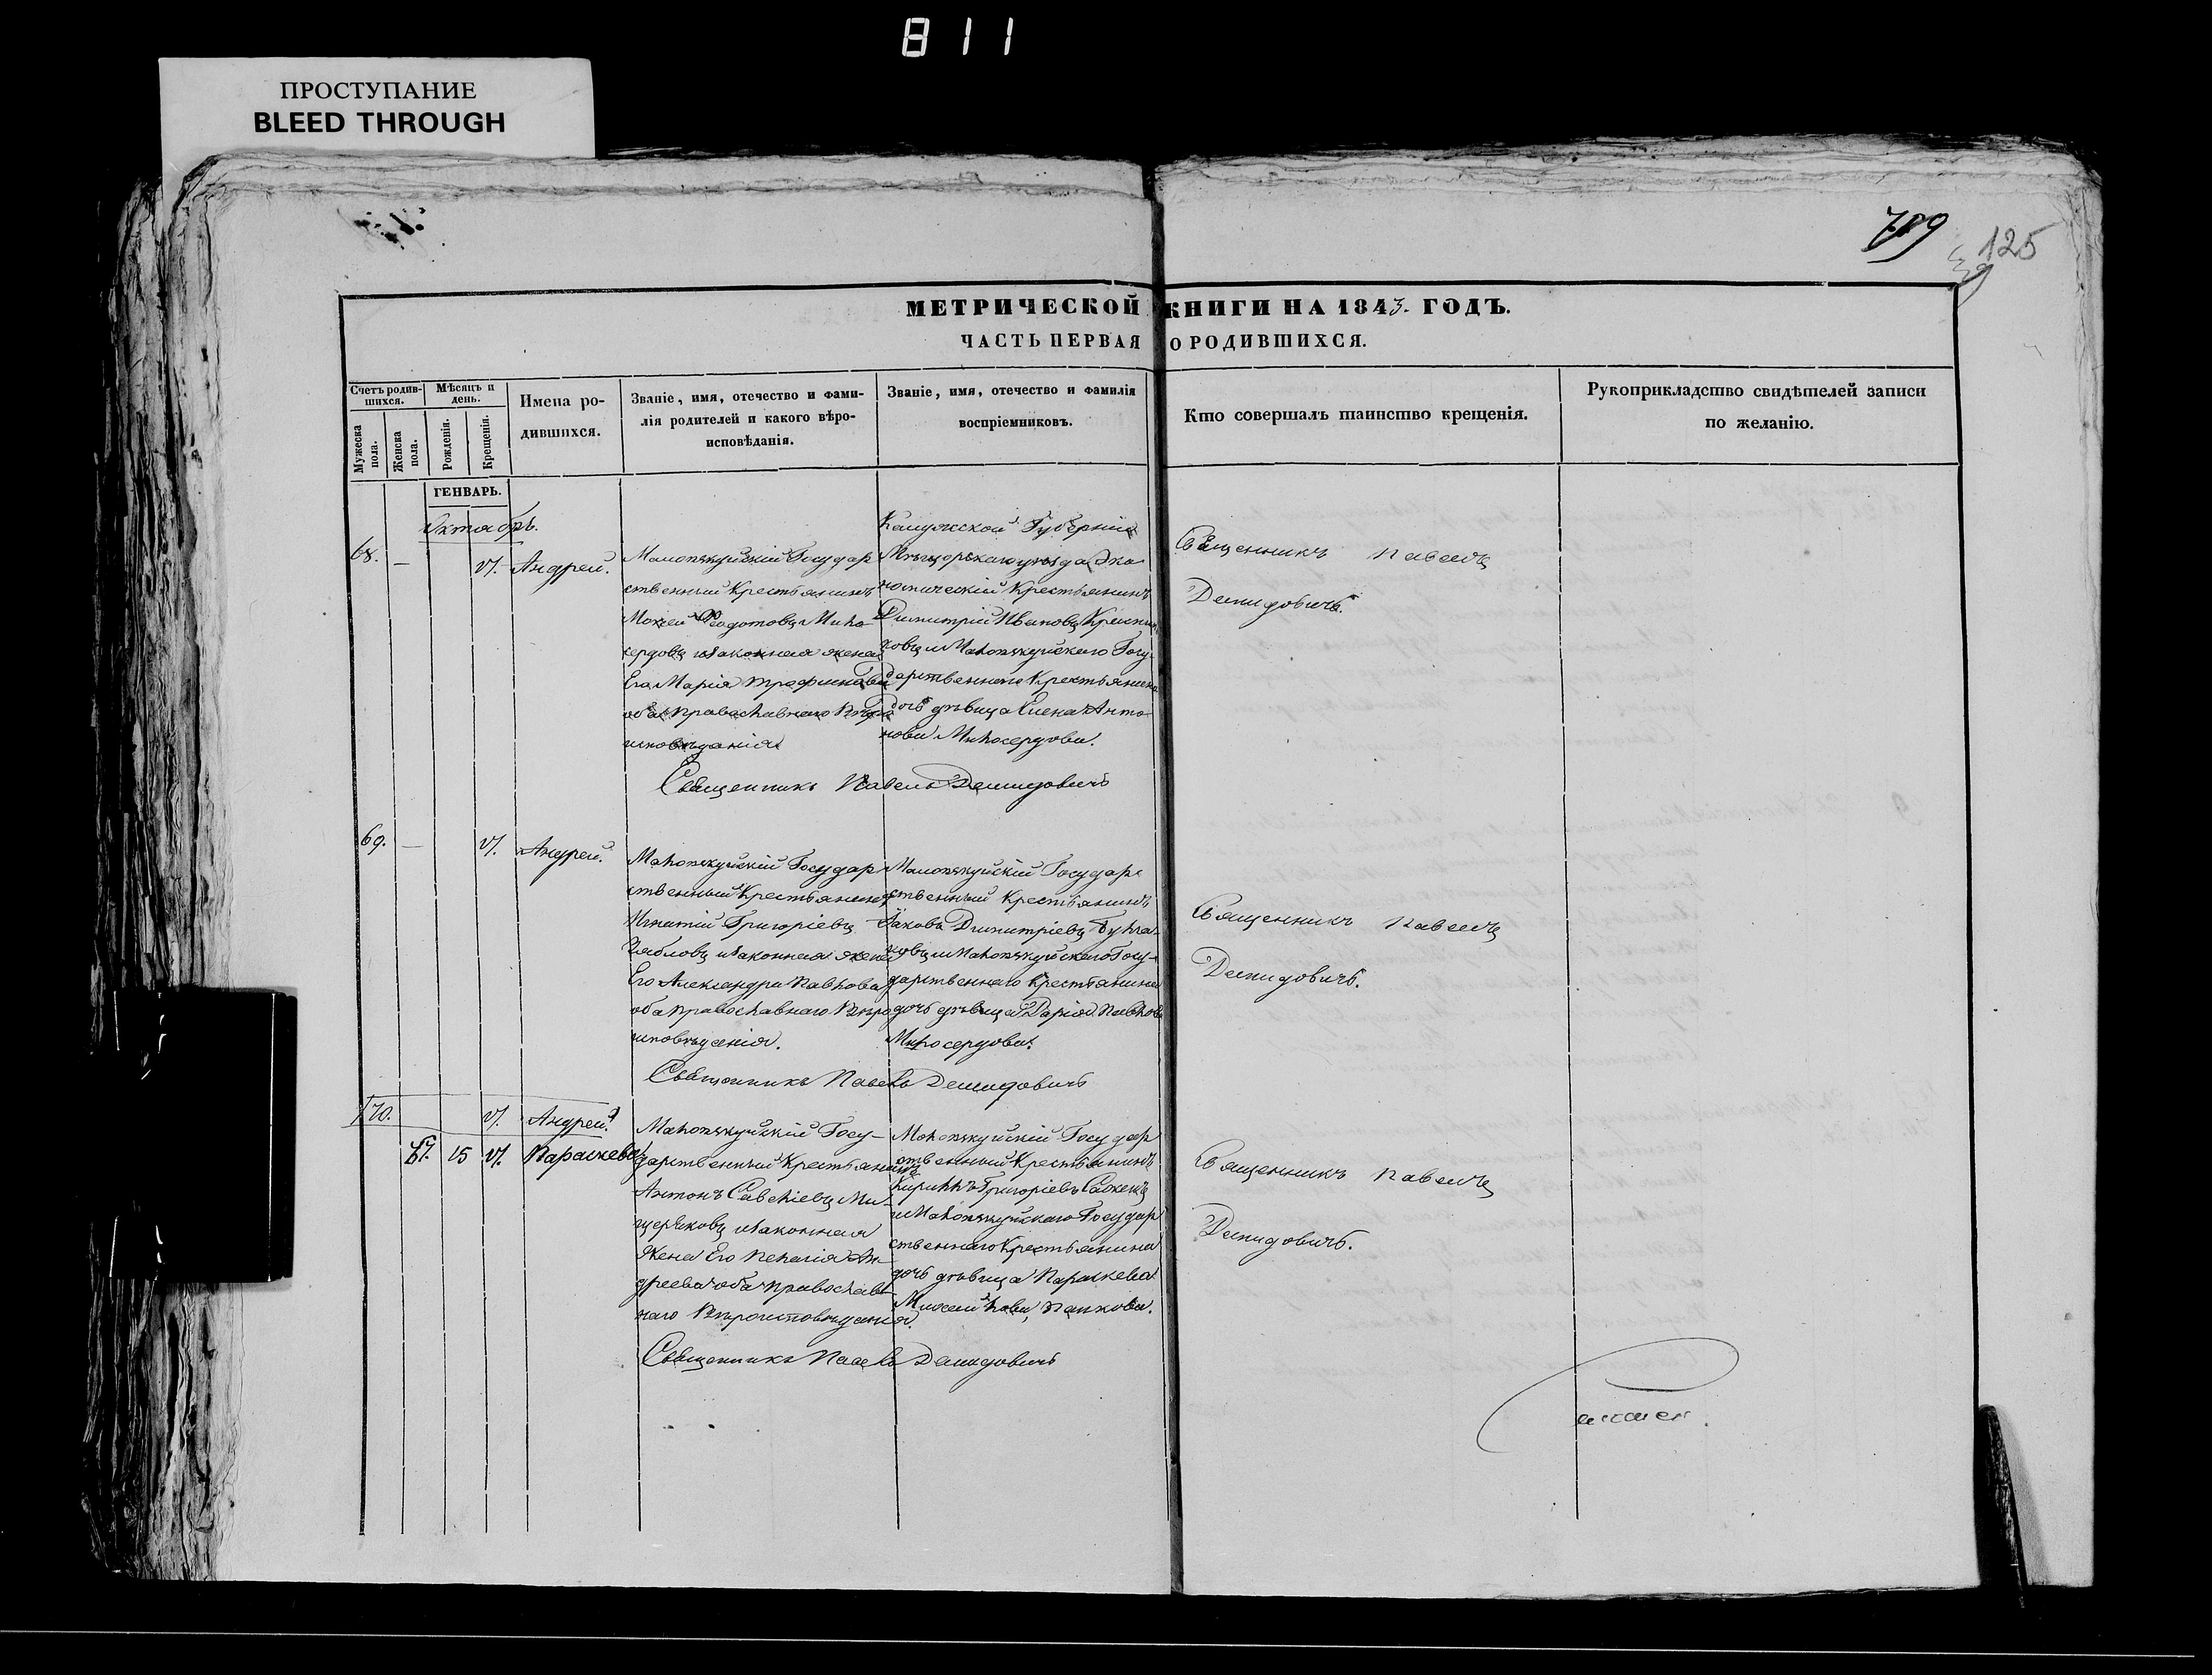 811
ПРОСТУПАНИЕ
BLEED THROUGH
125
МЕТРИЧЕСКОЙ КНИГИ НА 1843. ГОДЪ.
ЧАСТЬ ПЕРВАЯ О РОДИВШИХСЯ.
Счетъ родив-
шихся.
Мужеска
пола.
Женска
пола.
Мѣсяцъ и
день.
Рожденія.
Крещенія.
Имена ро-
дившихся.
Званіе, имя, отечество и фами-
лія родителей и какого вѣро-
исповѣданія.
Званіе, имя, отечество и фамилія
воспріемниковъ.
Кто совершалъ таинство крещенія.
Рукоприкладство свидѣтелей записи
по желанію.
ГЕНВАРЬ.
Октябрь.
68. — Андрей.
Государ
ственный Крестьянинъ
Мокей Федотовъ Мило
сердовъ и законная жена
Его Марія Трофимова
оба православнаго Вѣро
исповѣданія
Калужской Губерніи
уѣзда Эко
номическій Крестьянинъ
Димитрій Ивановъ
ковъ и Малопѣкуйскаго Госу
дарственнаго Крестьянина
дочь дѣвица Елена Анто
нова Милосердова.
Священникъ Павелъ
Демидовичъ.
Священникъ Павелъ Демидовичъ
69. — Андрей.
Малопѣкуйскій Государ
ственный Крестьянинъ
Игнатій Григоріевъ
и законная жена
Его Александра Павлова
оба православнаго Вѣро
исповѣданія.
Малопѣкуйскій Государ
ственный Крестьянинъ
Іаковъ Димитріевъ
ковъ и Малопѣкуйскаго Госу
дарственнаго Крестьянина
дочь дѣвица Дарія Павлова
Милосердова.
Священникъ Павелъ
Демидовичъ.
Священникъ Павелъ Демидовичъ
70. Андрей.
15 Параскева
Малопѣкуйскій Госу-
дарственный Крестьянинъ
Антонъ Савеліевъ Ми-
щеряковъ и законная
Жена Его Пелагія Ан-
дреева оба православ
наго Вѣроисповѣданія.
Малопѣкуйскій Государ
ственный Крестьянинъ
Кириллъ Григоріевъ
и Малопѣкуйскаго Государ
ственнаго Крестьянина
дочь дѣвица Параскева
Панкова.
Священникъ Павелъ
Демидовичъ.
Священникъ Павелъ Демидовичъ